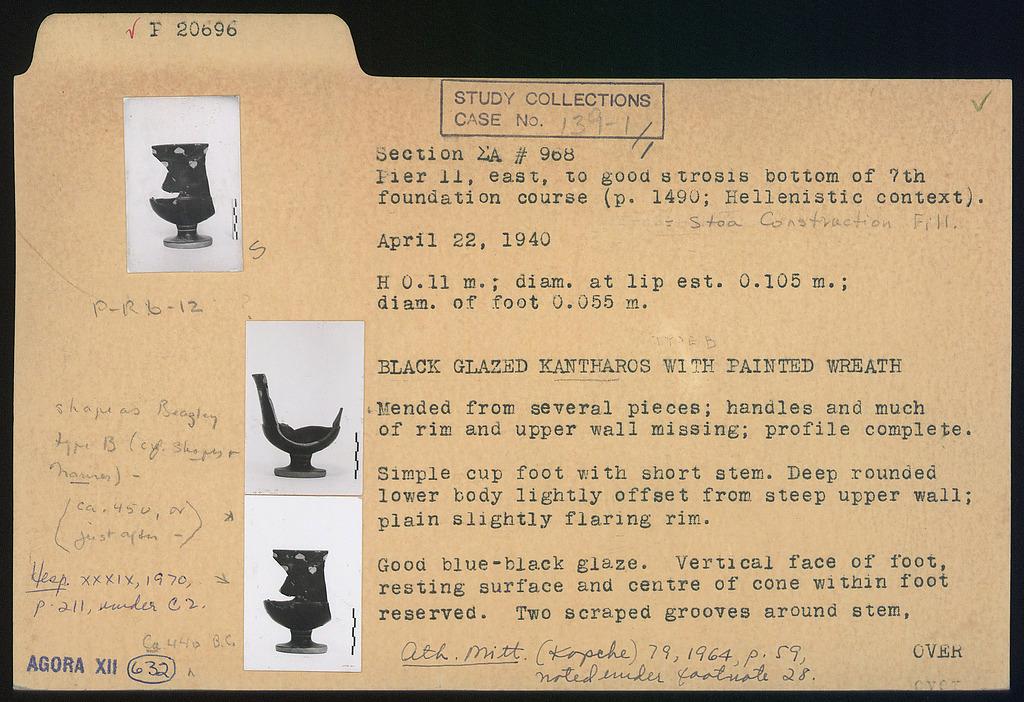 √ P 20696
STUDY COLLECTIONS
CASE No. 139-1/1
Section ΣA # 968
Pier 11, east, to good strosis bottom of 7th
foundation course (p. 1490; Hellenistic context).
= Stoa Construction Fill.
April 22, 1940
H 0.11 m.; diam. at lip est. 0.105 m.;
diam. of foot 0.055 m.
S
P-R 6-12
TYPE B
BLACK GLAZED KANTHAROS WITH PAINTED WREATH
Mended from several pieces; handles and much
of rim and upper wall missing; profile complete.
Simple cup foot with short stem. Deep rounded
lower body lightly offset from steep upper wall;
plain slightly flaring rim.
Good blue-black glaze. Vertical face of foot,
resting surface and centre of cone within foot
reserved. Two scraped grooves around stem,
shape as Beazley
type B (cf. Shapes +
Names) -
(ca. 450, or
just after -)
Hesp. XXXIX, 1970,
p. 211, under C2.
Ca 440 B.C.
AGORA XII 632
Ath. Mitt. (Kopcke) 79, 1964, p. 59,
noted under footnote 28.
OVER
OVER